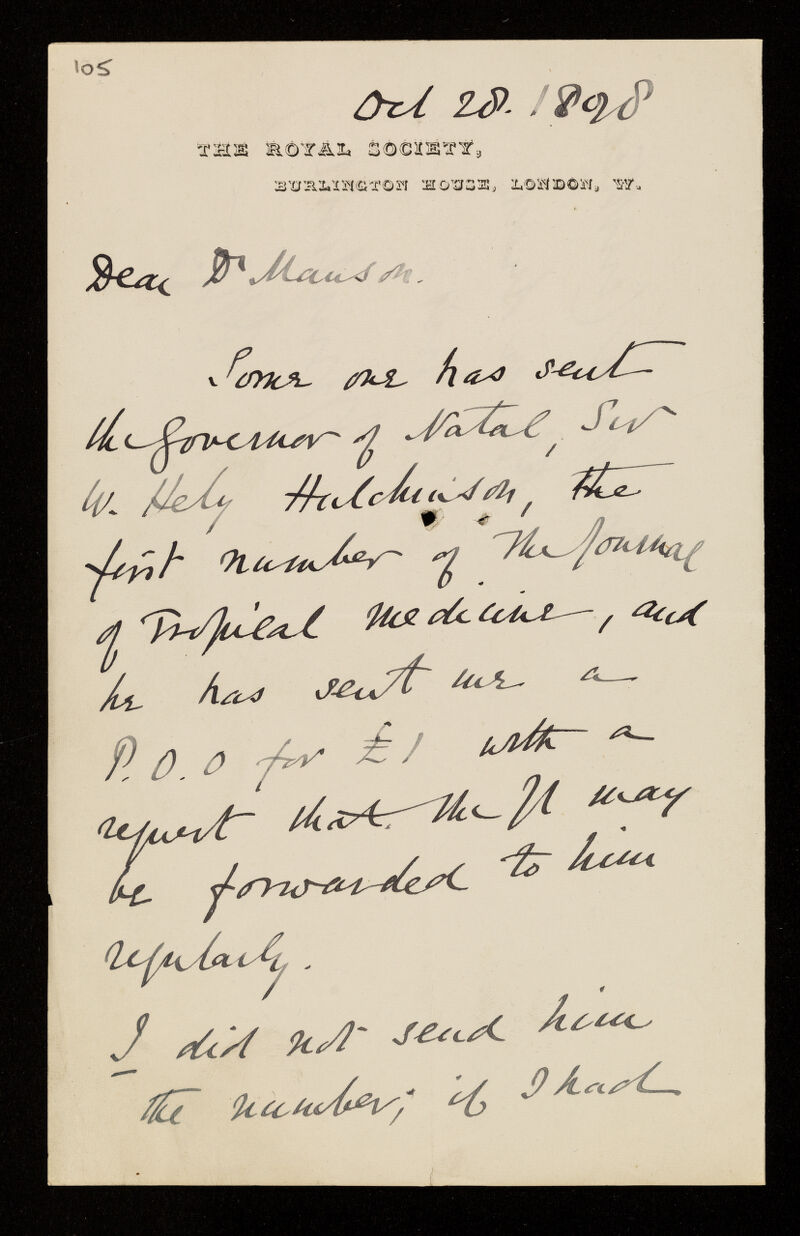 105
Oct 28. 1898
THE ROYAL SOCIETY,
BURLINGTON HOUSE, LONDON, W.
Dear Dr Manson.
Some one has sent
the Governor of Natal, Sir
W. Hely Hutchinson, the
first number of The Journal
of Tropical Medicine, and
he has sent me a
P.O.O for £1 with a
request that the Jl may
be forwarded to him
regularly.
I did not send him
the number; if I had